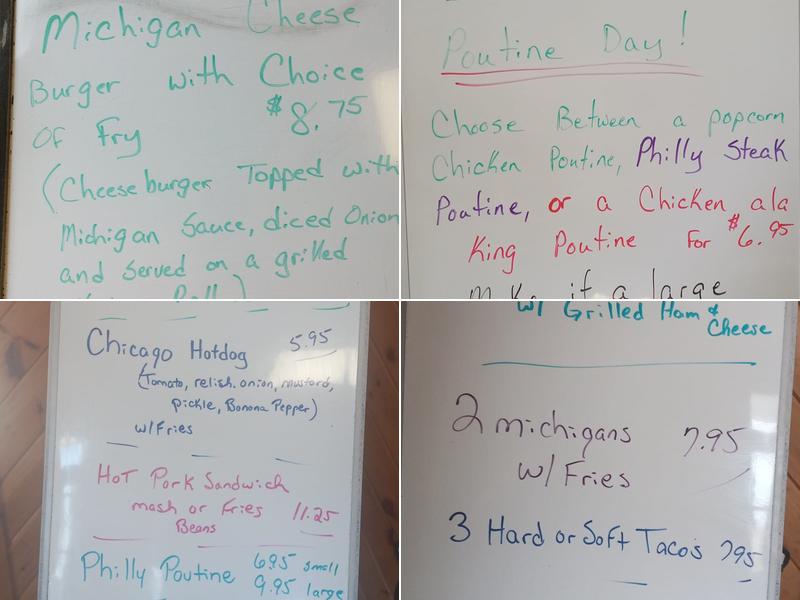 Michigan Cheese
Burger with Choice
of Fry $8.75
(Cheeseburger Topped with
Michigan Sauce, diced Onion
and served on a grilled
Roll)
Poutine Day!
Choose Between a popcorn
Chicken Poutine, Philly Steak
Poutine, or a Chicken ala
King Poutine For $6.95
make it a large
Chicago Hotdog 5.95
(Tomato, relish, onion, mustard,
pickle, Banana Pepper)
w/Fries
Hot Pork Sandwich
mash or Fries 11.25
Beans
Philly Poutine 6.95 small
9.95 large
w/ Grilled Ham &
Cheese
2 michigans 7.95
w/ Fries
3 Hard or Soft Tacos 7.95